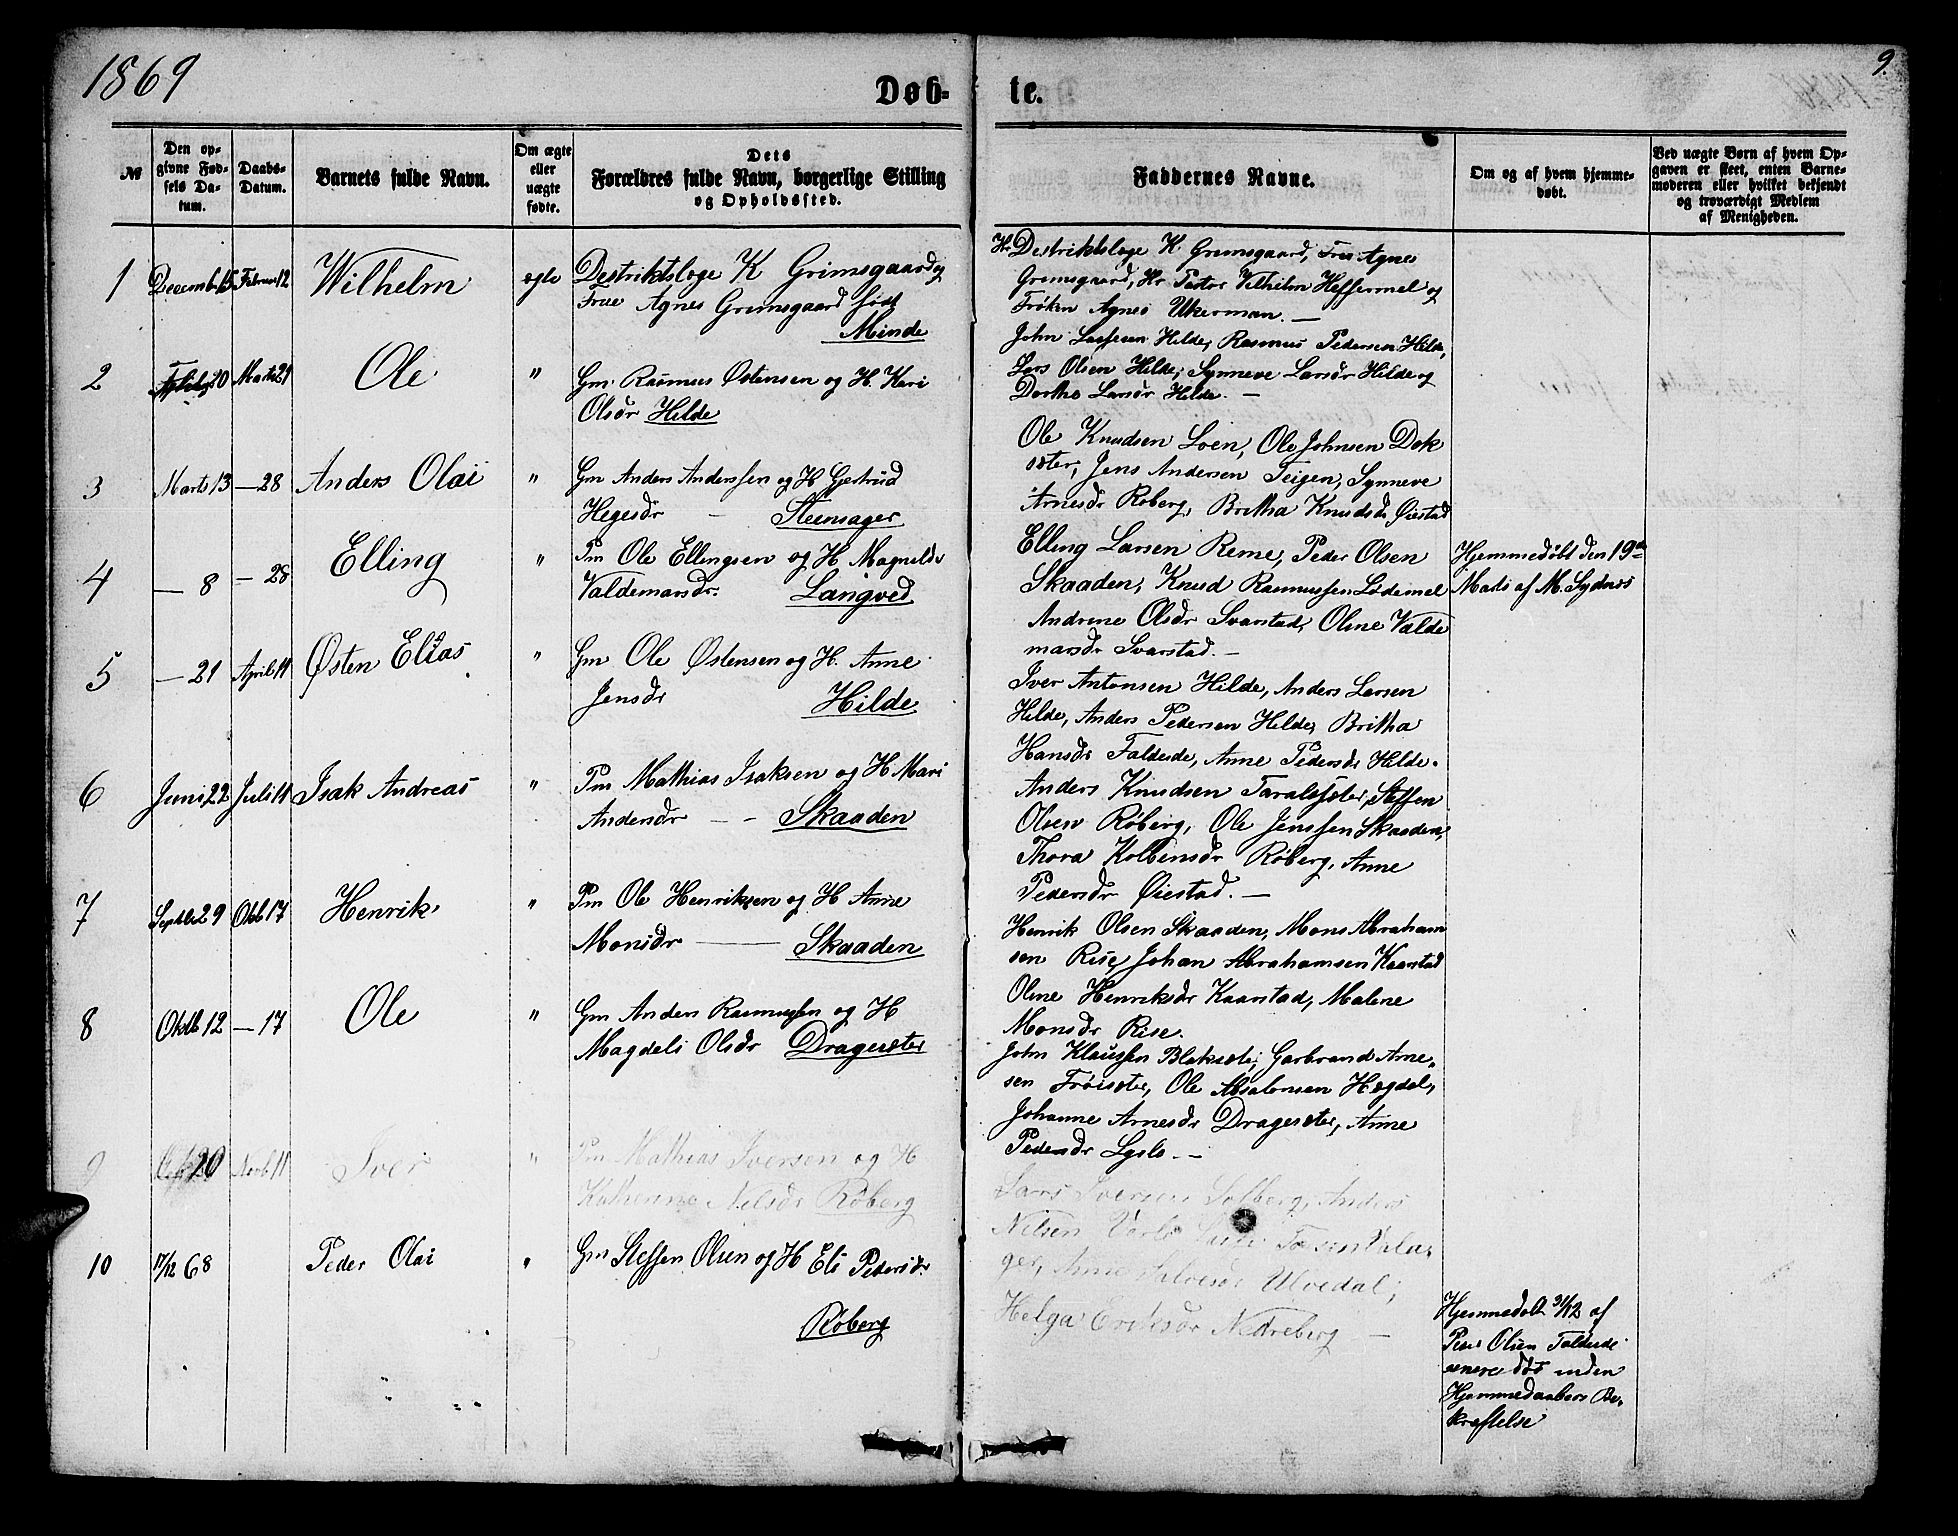 1869
Døb-
te.
9.
№
Den op-
givne Fød-
sels Da-
tum.
Daabs-
Datum.
Barnets fulde Navn.
Om ægte
eller
uægte
fødte.
Dets
Forældres fulde Navn, borgerlige Stilling
og Opholdssted.
Faddernes Navne.
Om og af hvem hjemme-
døbt.
Ved uægte Børn af hvem Op-
gaven er skeet, enten Barne-
moderen eller hvilket bekjendt
og troværdigt Medlem
af Menigheden.
1
Decemb. 15
Februar 12
Wilhelm
egte
Destriktslæge K Grimsgaard og
Frue Agnes Grimsgaard født
Minde
Hr Destriktslæge K. Grimsgaard, Frue Agnes
Grimsgaard, Hr. Pastor Vilhelm Heffermel og
Frøken Agnes Ukerman. —
2
20
Marts 29
Ole
"
Gm. Rasmus Østensen og H. Kari
Olsdr Hilde
John Lassesen Hilde, Rasmus Pedersen Hilde,
Lars Olsen Hilde, Synneve Larsdr Hilde og
Dorthe Larsdr Hilde. —
3
Marts 13
— 28
Anders Olai
"
Gm Anders Anderssen og H Gjertrud
Hegesdr — Steensager
Ole Knudsen Loen, Ole Johnsen Dok
sæter, Jens Andersen Teigen, Synneve
Arnesdr Røberg, Britha Knudsdr Øiestad
4
— 8
— 28
Elling
"
Pm Ole Ellingsen og H Magnilde
Valdemarsdr. Langved
Elling Larsen Reme, Peder Olsen
Skaaden, Knud Rasmussen Lødemel
Andrine Olsdr Svarstad, Oline Valde
marsdr Svarstad. —
Hjemmedøbt den 19de
Marts af M. Sydnes
5
— 21
April 11
Østen Elias
"
Gm Ole Østensen og H. Anne
Jensdr Hilde
Iver Antonsen Hilde, Anders Larsen
Hilde, Anders Pedersen Hilde, Britha
Hansdr Faldeide, Anne Pedersdr Hilde.
6
Juni 22
Juli 11
Isak Andreas
"
Pm Mathias Isaksen og H Mari
Andersdr — - Skaaden
Anders Knudsen Taralsæter, Steffen
Olsen Røberg, Ole Jenssen Skaaden,
Thora Kolbensdr Røberg, Anne
Pedersdr Øiestad. —
7
Septbr 29
Oktb 17
Henrik
"
Pm Ole Henriksen og H Anne
Monsdr — Skaaden
Henrik Olsen Skaaden, Mons Abraham
sen Rise, Johan Abrahamsen Kaarstad
Oline Henriksdr Kaarstad, Malene
Monsdr Rise.
8
Oktb 12
— 17
Ole
"
Gm Anders Rasmussen og H
Magdeli Olsdr Dragesæter
John Klaussen Blaksæte, Garbrand Arne-
sen Frøisæter, Ole Absalonsen Hægdal,
Johanne Arnesdr Dragesæter, Anne
Pedersdr Lyslo. —
9
20
Novb 11
Iver
"
Pm Mathias Iversen og H
Katherine Nilsdr Røberg
Lars Iversen Solberg, Anders
Nilsen
Ulvedal,
Helga Eriksdr Nedreberg —
10
17/12 68
Peder Olai
"
Gm Steffen Olsen og H Eli Pedersdr
Røberg
Hjemmedøbt 31/12 af
Peder Olsen Faldeide
senere død inden
Hjemmedaabens Be-
kræftelse